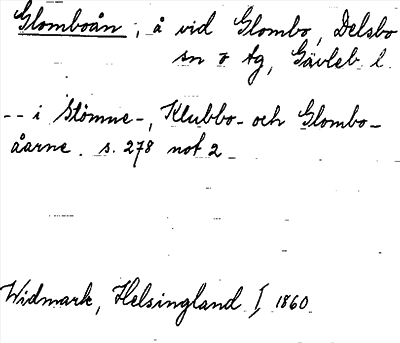 Glomboån, å vid Glombo, Delsbo
sn o tg, Gävleb. l.
-- i Stömne-, Klubbo- och Glombo-
åarne. s. 278 not 2
Widmark, Helsingland I, 1860